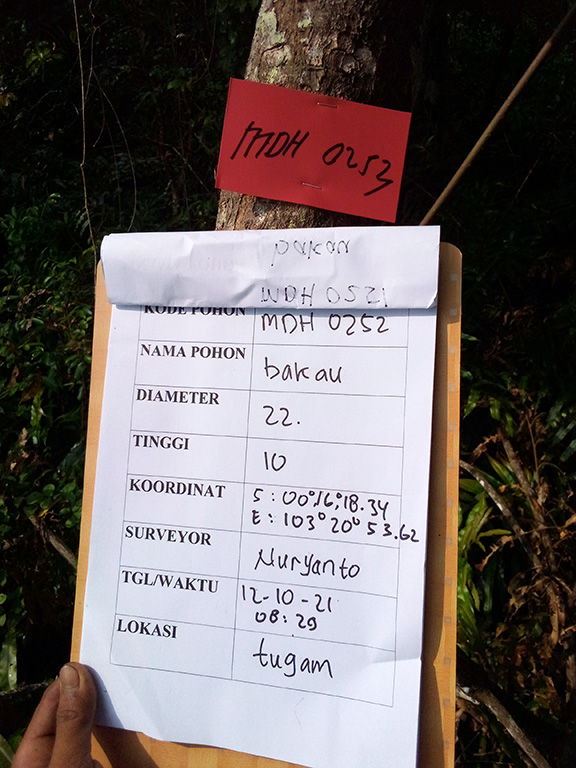 MDH 0253
pakau
MDH 0521
KODE POHON MDH 0252
NAMA POHON bakau
DIAMETER 22.
TINGGI 10
KOORDINAT S : 00°,16°,18.34
E : 103° 20° 53.62
SURVEYOR Nuryanto
TGL/WAKTU 12-10-21
08:29
LOKASI tugam